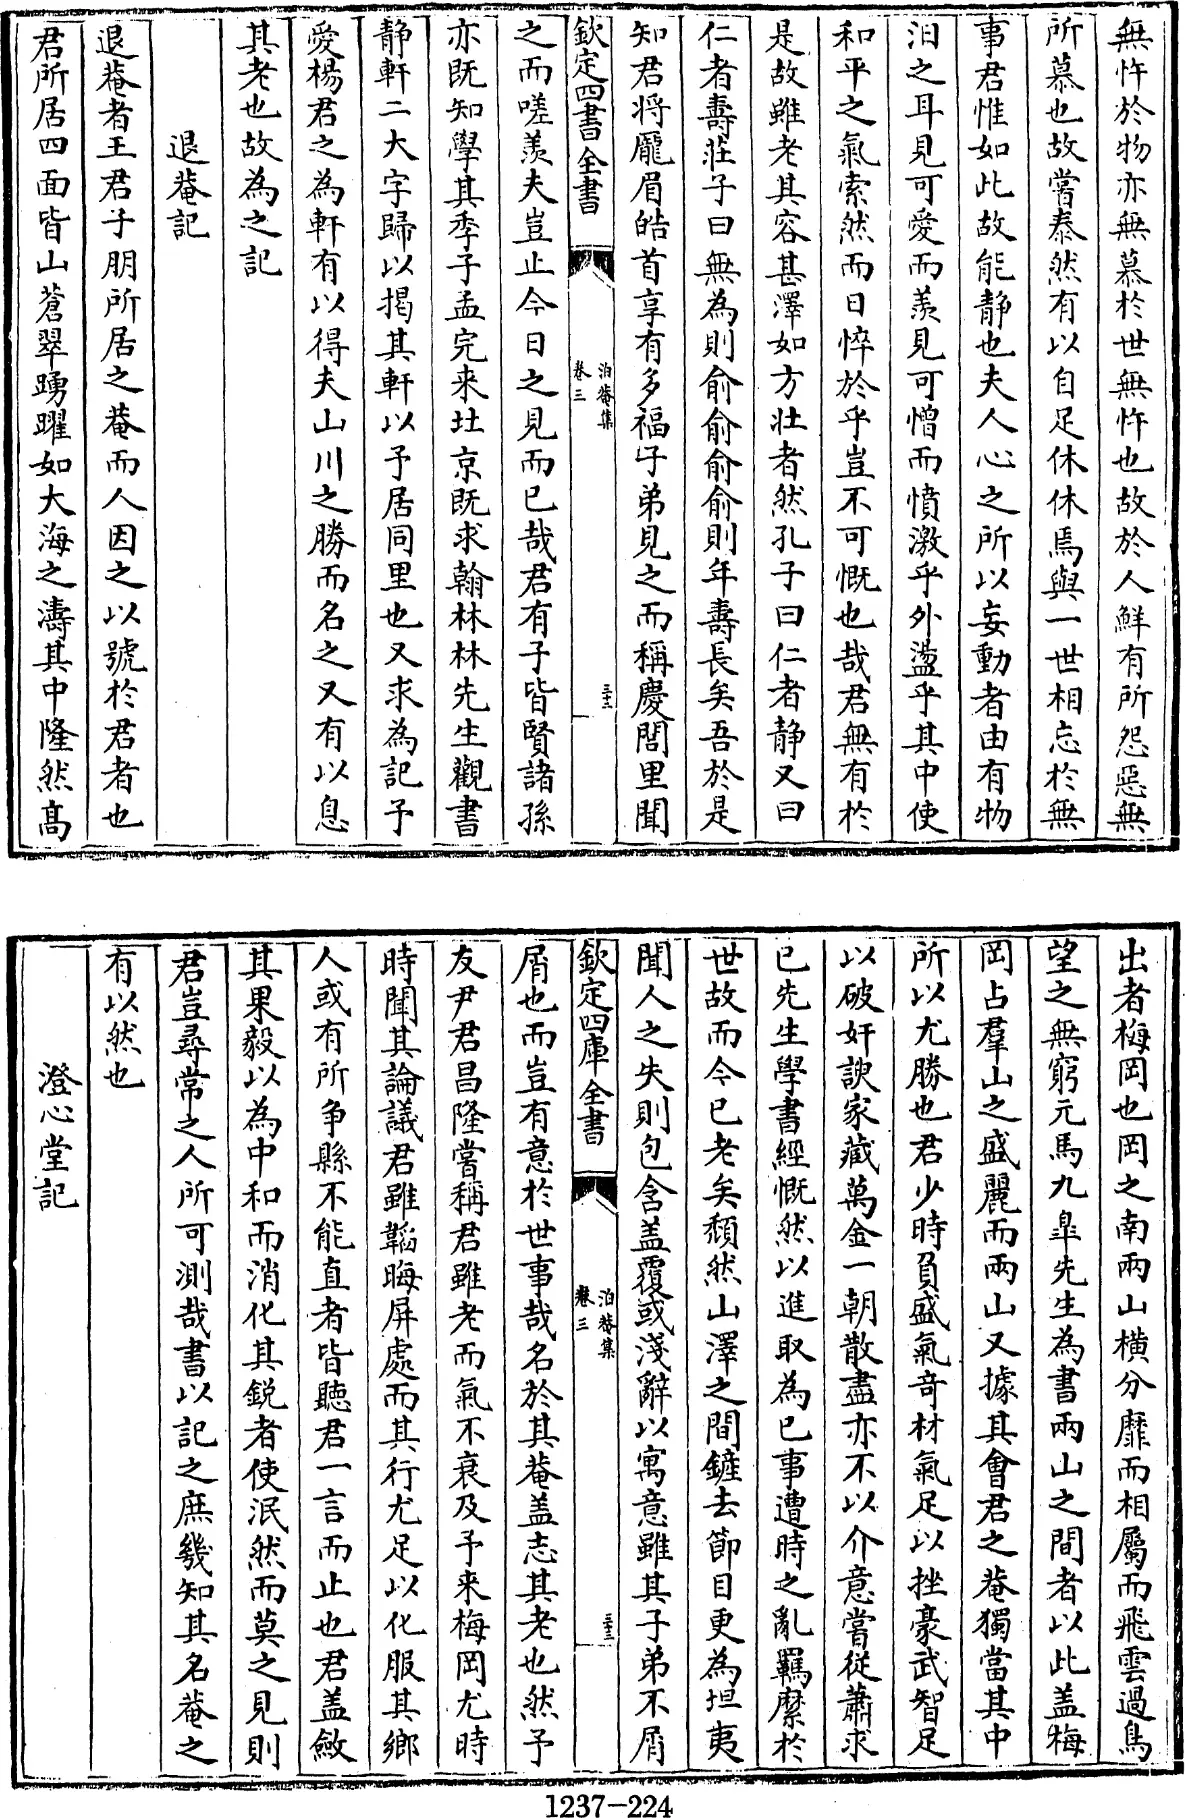 無忤於物亦無慕於世無忤也故於人鮮有所怨惡無
所慕也故嘗泰然有以自足休休焉與一世相忘於無
事君惟如此故能静也夫人心之所以妄動者由有物
汨之耳見可愛而羨見可憎而憤激乎外盪乎其中使
和平之氣索然而日悴於乎豈不可慨也哉君無有於
是故雖老其容甚澤如方壯者然孔子曰仁者静又曰
仁者壽莊子曰無為則俞俞俞俞則年壽長矣吾於是
知君將龐眉皓首享有多福子弟見之而稱慶閭里聞
欽定四書全書
泊菴集
卷三
三十三
之而嗟羨夫豈止今日之見而已哉君有子皆賢諸孫
亦既知學其季子孟完来北京既求翰林林先生觀書
静軒二大字歸以掲其軒以予居同里也又求為記予
愛楊君之為軒有以得夫山川之勝而名之又有以息
其老也故為之記
退菴記
退菴者王君子朋所居之菴而人因之以號於君者也
君所居四面皆山蒼翠踴躍如大海之濤其中隆然髙
出者梅岡也岡之南兩山横分靡而相屬而飛雲過鳥
望之無窮元馬九臯先生為書兩山之間者以此盖梅
岡占羣山之盛麗而兩山又據其會君之菴獨當其中
所以尤勝也君少時負盛氣奇材氣足以挫豪武智足
以破奸諛家藏萬金一朝散盡亦不以介意嘗從蕭求
已先生學書經慨然以進取為已事遭時之亂羈縻於
世故而今已老矣頽然山澤之間鏟去節目更為坦夷
聞人之失則包含盖覆或淺辭以寓意雖其子弟不屑
欽定四庫全書
泊菴集
卷三
三十三
屑也而豈有意於世事哉名於其菴盖志其老也然予
友尹君昌隆嘗稱君雖老而氣不衰及予来梅岡尤時
時聞其論議君雖韜晦屏處而其行尤足以化服其鄉
人或有所争縣不能直者皆聽君一言而止也君盖斂
其果毅以為中和而消化其鋭者使泯然而莫之見則
君豈尋常之人所可測哉書以記之庶幾知其名菴之
有以然也
澄心堂記
1237-224